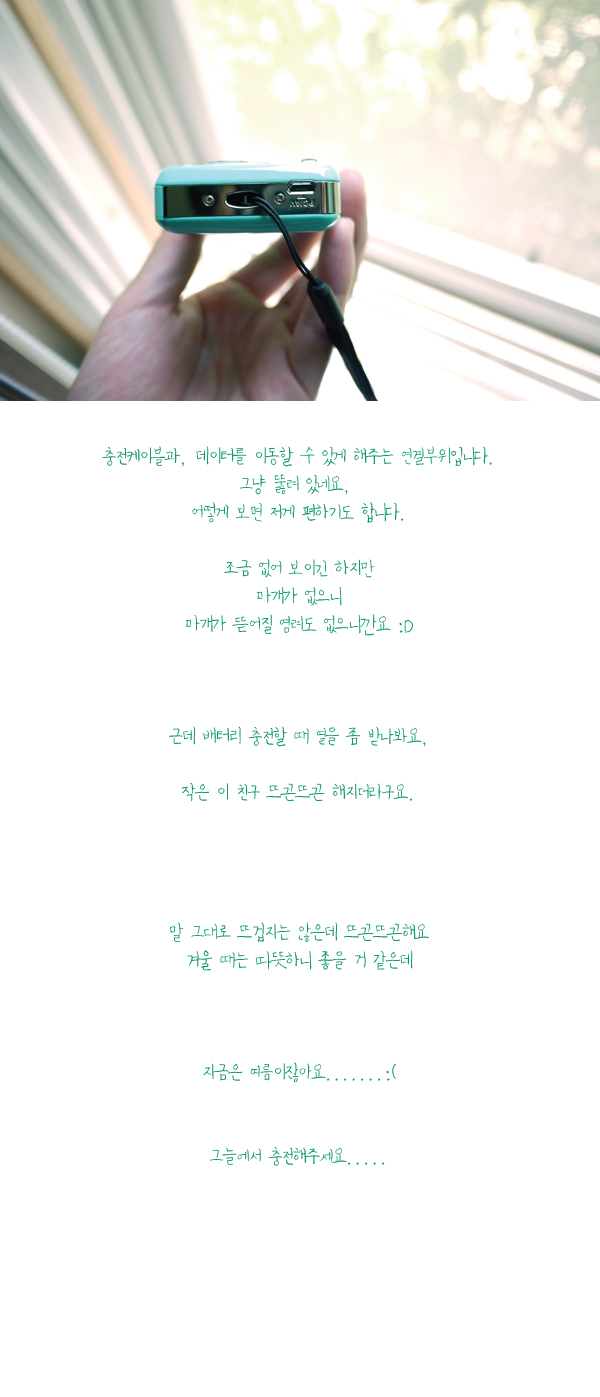 PC/AV
충전케이블과, 데이터를 이동할 수 있게 해주는 연결부위입니다.
그냥 뚫려 있네요,
어떻게 보면 저게 편하기도 합니다.
조금 없어 보이긴 하지만
마개가 없으니
마개가 뜯어질 염려도 없으니깐요 :D
근데 배터리 충전할 때 열을 좀 받나봐요,
작은 이 친구 뜨끈뜨끈 해지더라구요.
말 그대로 뜨겁지는 않은데 뜨끈뜨끈해요
겨울 때는 따뜻하니 좋을 거 같은데
지금은 여름이잖아요........:(
그늘에서 충전해주세요.....